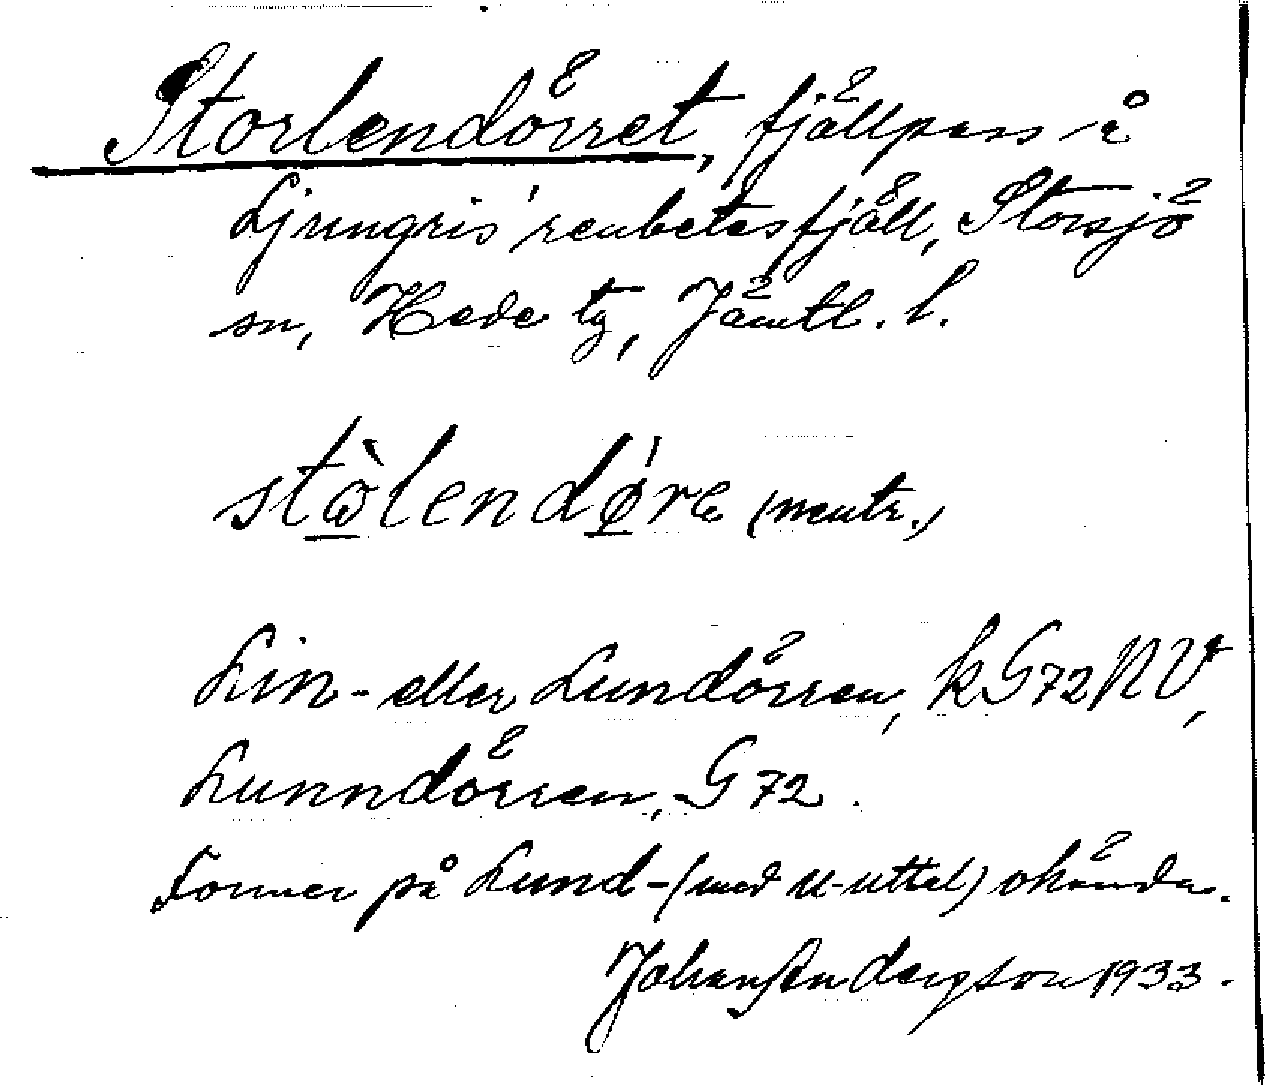 Storlendörret, fjällpass å
Ljungris' renbetesfjäll, Storsjö
sn, Hede tg, Jämtl. l.
stɷ̀lendǿrɐ (neutr.)
Lin- eller Lundörren, kG72NV,
Lunndörren, G72.
Former på Lund- (med u-uttal) okända.
Johan Andersson 1933.